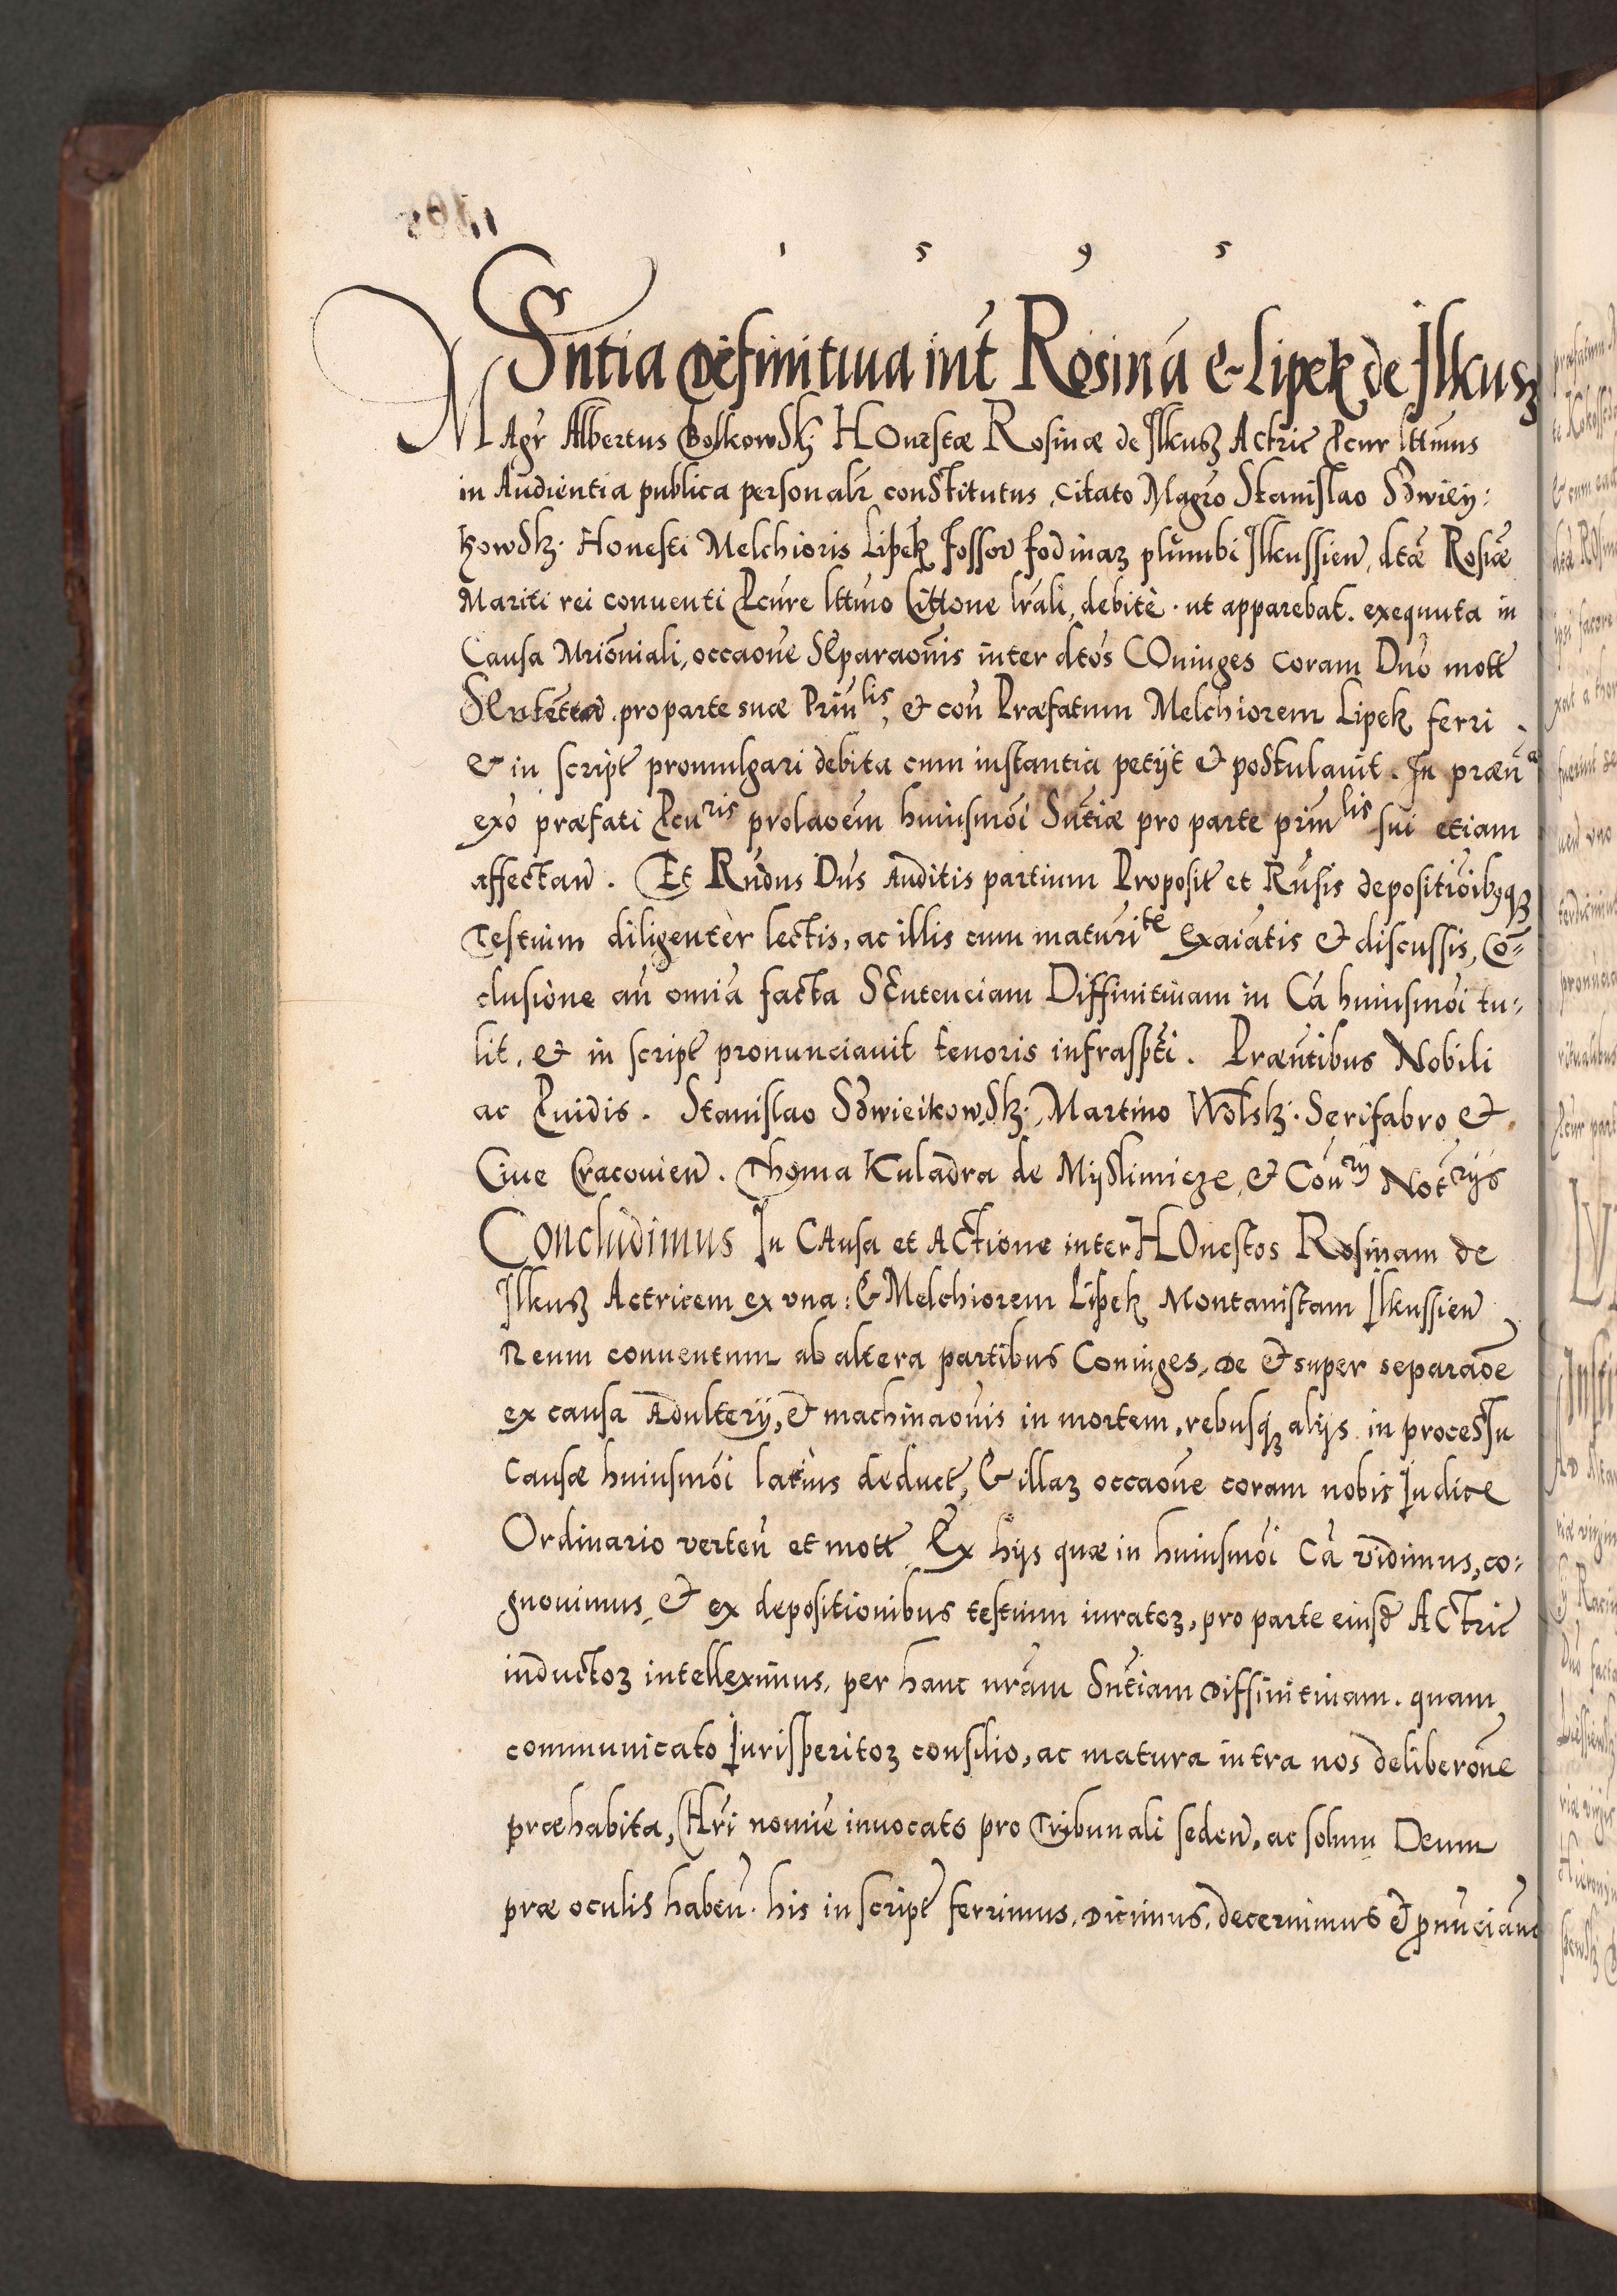 1 5 9 5
Sntia Definitiua int Rosinā & Lipek de Ilkusz
MAgr Albertus Bolkowsk: HOnestæ Rosinæ de Ilkusz Actric Pcur lttimus
in Audientia publica personalr constitutus, citato Magro Stanislao Swiey:
kowsk: Honesti Melchioris Lipek fossor fodinaz plumbi Ilkussien, dtæ Rosiæ
Mariti rei conuenti Pcure lttimo Cittone lrali, debitè. ut apparebat. exequuta in
Causa Mriōniali, occaone SEparaonis inter dtos COniuges coram Dno mott
pro parte suæ Prinlis, & con Præfatum Melchiorem Lipek ferri
& in script promulgari debita cum instantia petijt & postulauit. In præna
exo præfati Pcuris prolaoem huiusmoi Sntiæ pro parte prinlis sui etiam
affectan. Et Rndus Dns Auditis partium Proposit et Rnsis depositioibusqz
Testium diligenter lectis, ac illis cum maturite Exaiatis & discussis, Co=
clusione an omia facta SEntenciam Diffinitiuam in Ca huiusmoi tu:
lit, & in script pronunciauit tenoris infrasptti. Præntibus Nobili
ac Puidis. Stanislao Swieikowsk: Martino Wolsk: Serifabro &
Ciue Cracouien. Thoma Kuladra de Myslimicze, & Conry Notrijs
Concludimus In CAusa et ACtione inter HOnestos Rosinam de
Ilkusz Actricem ex vna: & Melchiorem Lipek Montanistam Ilkussien
Reum conuentum ab altera partibus Coniuges, De & super separaoe
ex causa Adulterij, & machinaonis in mortem, rebusqz alijs in processu
Causæ huiusmoi latius deduct, & illaz occaone coram nobis Iudice
Ordinario verten et mott Ex hijs quæ in huiusmoi Ca vidimus, co:
gnouimus, & ex depositionibus testium iuratoz, pro parte eiusd ACtric
inductoz intelleximus, per hanc nram Sntiam Diffinitiuam. quam
communicato Iurisperitoz consilio, ac matura intra nos deliberone
præhabita, Chri nomie inuocato pro Tribunali seden, ac solum Deum
præ oculis haben. his in script ferrimus, dicimus, decernimus & pnuciam